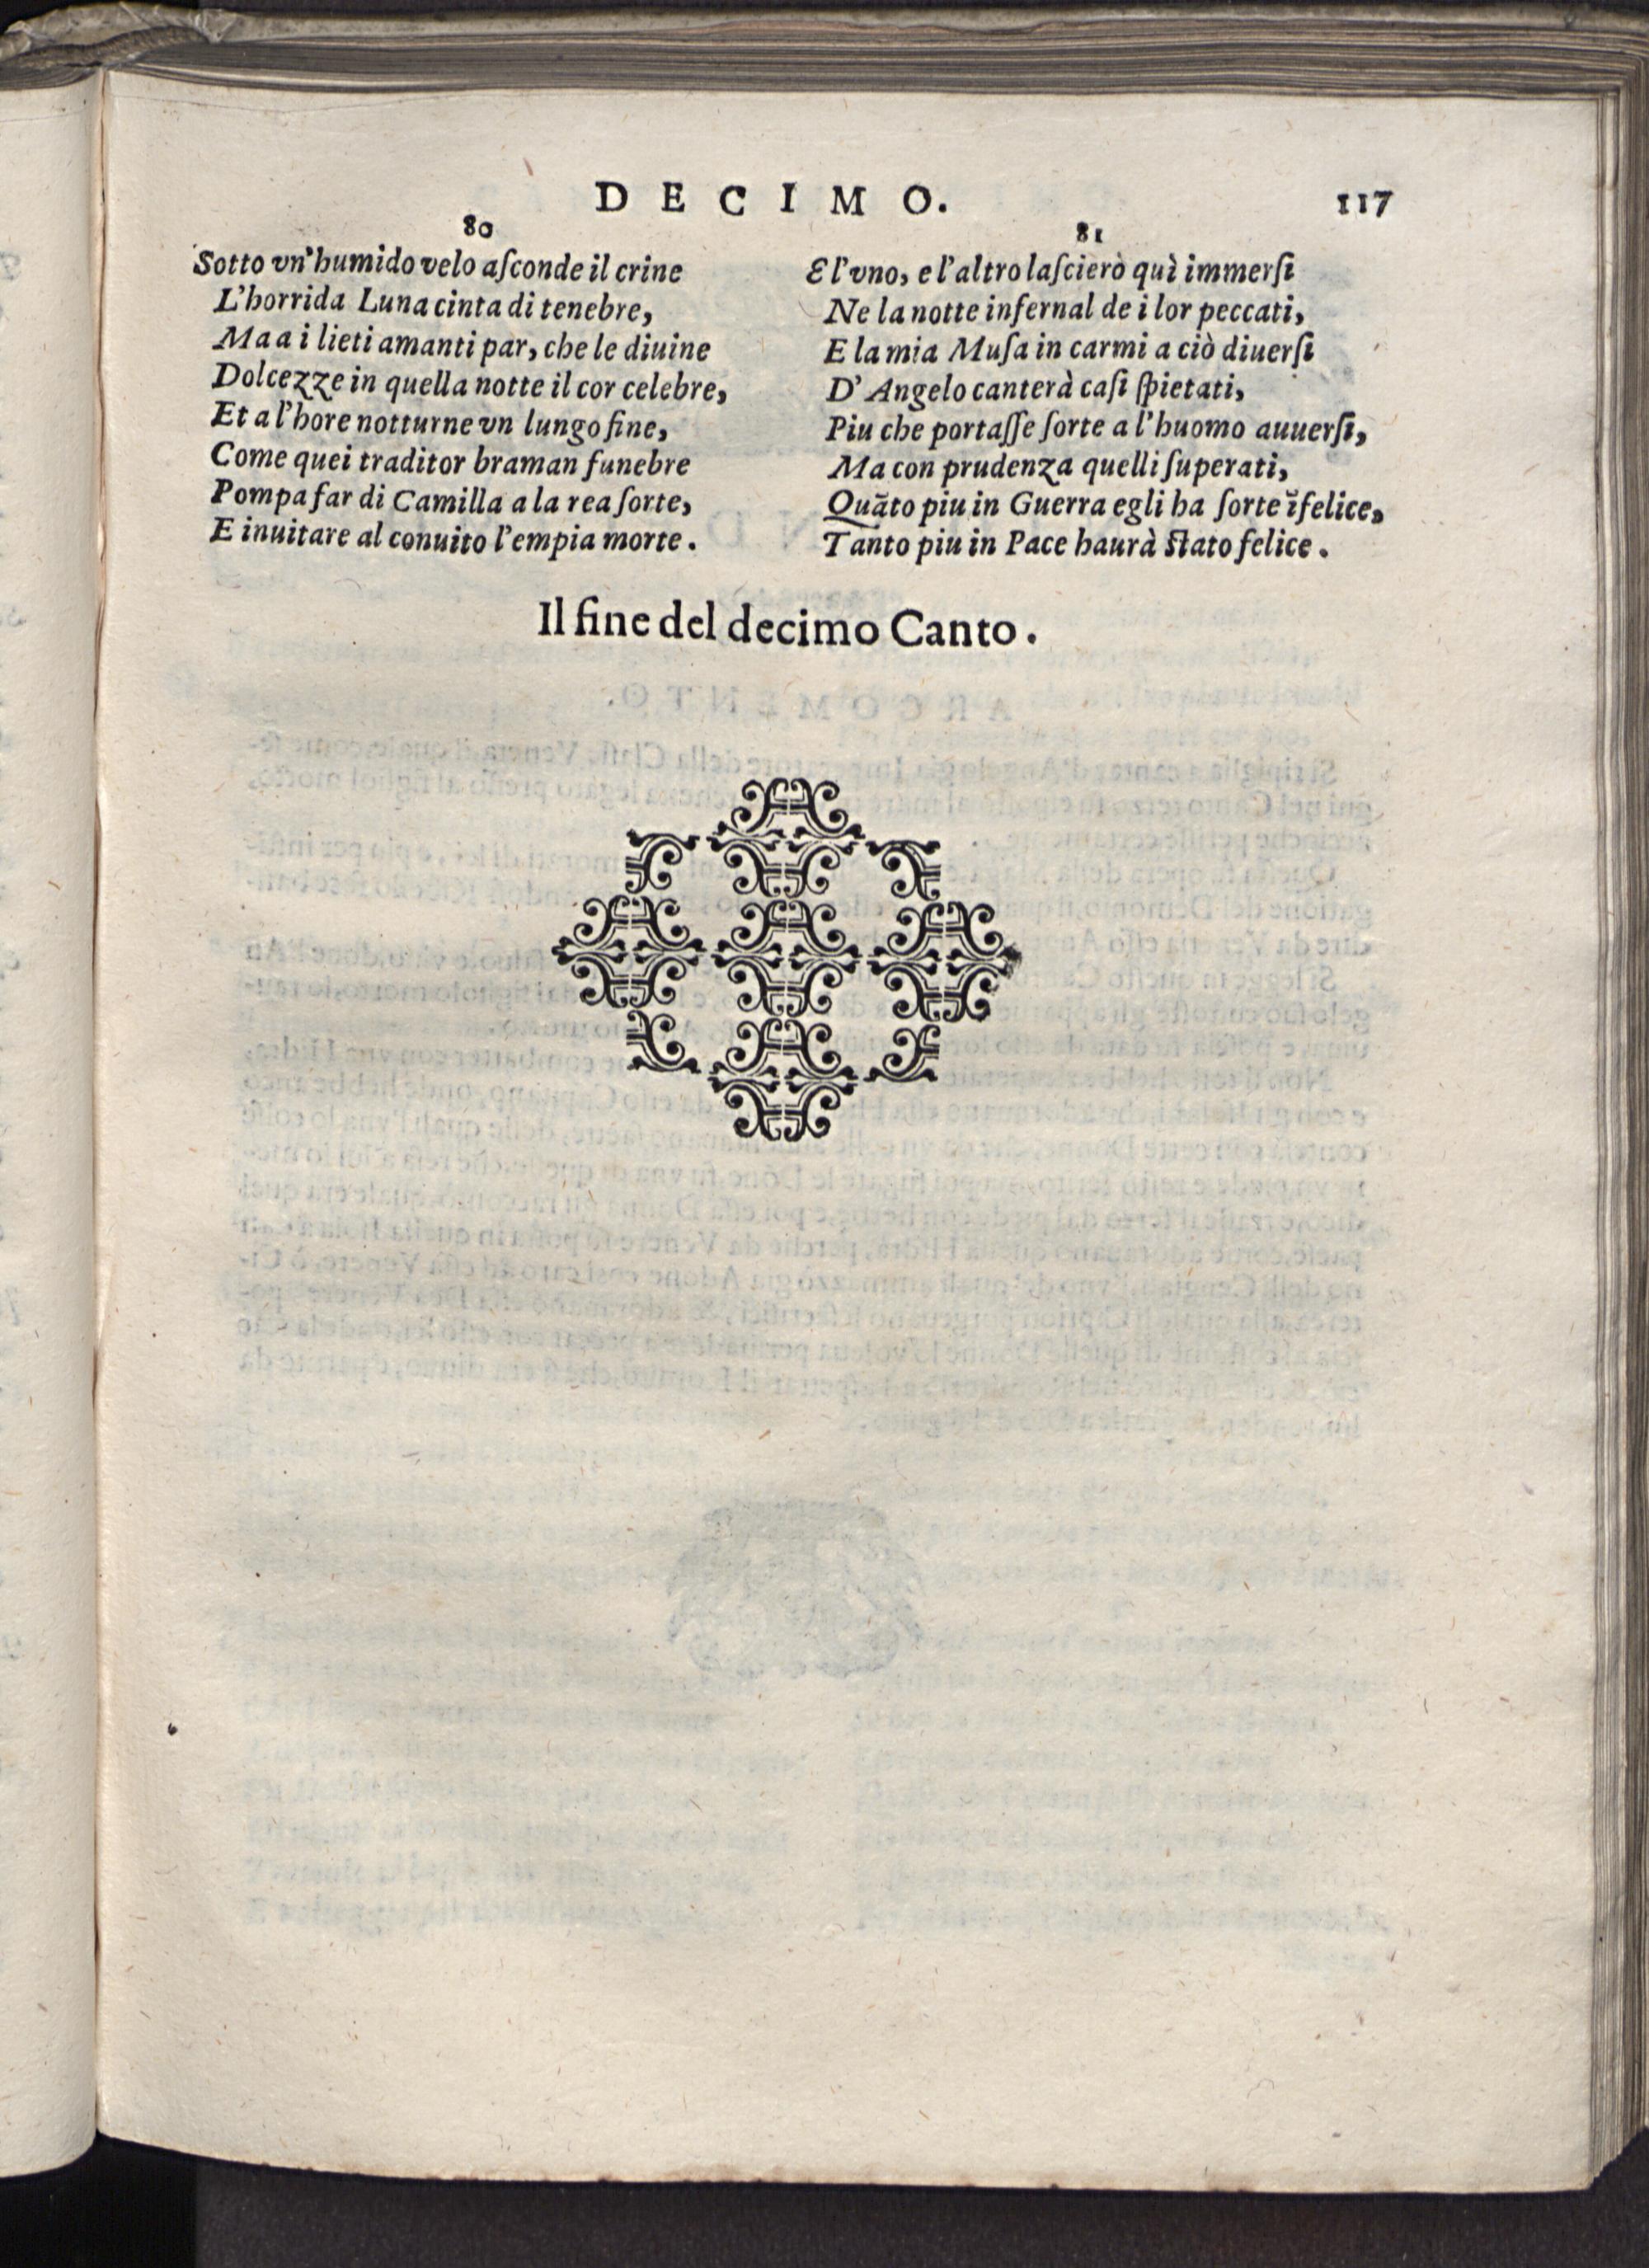 DECIMO.
117
80
Sotto vn'humido velo aſconde il crine
L'horrida Luna cinta di tenebre,
Ma a i lieti amanti par, che le diuine
Dolcezze in quella notte il cor celebre,
Et a l'hore notturne vn lungo fine,
Come quei traditor braman funebre
Pompa far di Camilla a la rea ſorte,
E inuitare al conuito l'empia morte.
81
E l'vno, e l'altro laſcierò quì immerſi
Ne la notte infernal de i lor peccati,
E la mia Muſa in carmi a ciò diuerſi
D'Angelo canterà caſi ſpietati,
Piu che portaſſe ſorte a l'huomo auuerſi,
Ma con prudenza quelli ſuperati,
Quãto piu in Guerra egli ha ſorte ĩfelice,
Tanto piu in Pace haurà ſtato felice.
Il fine del decimo Canto.